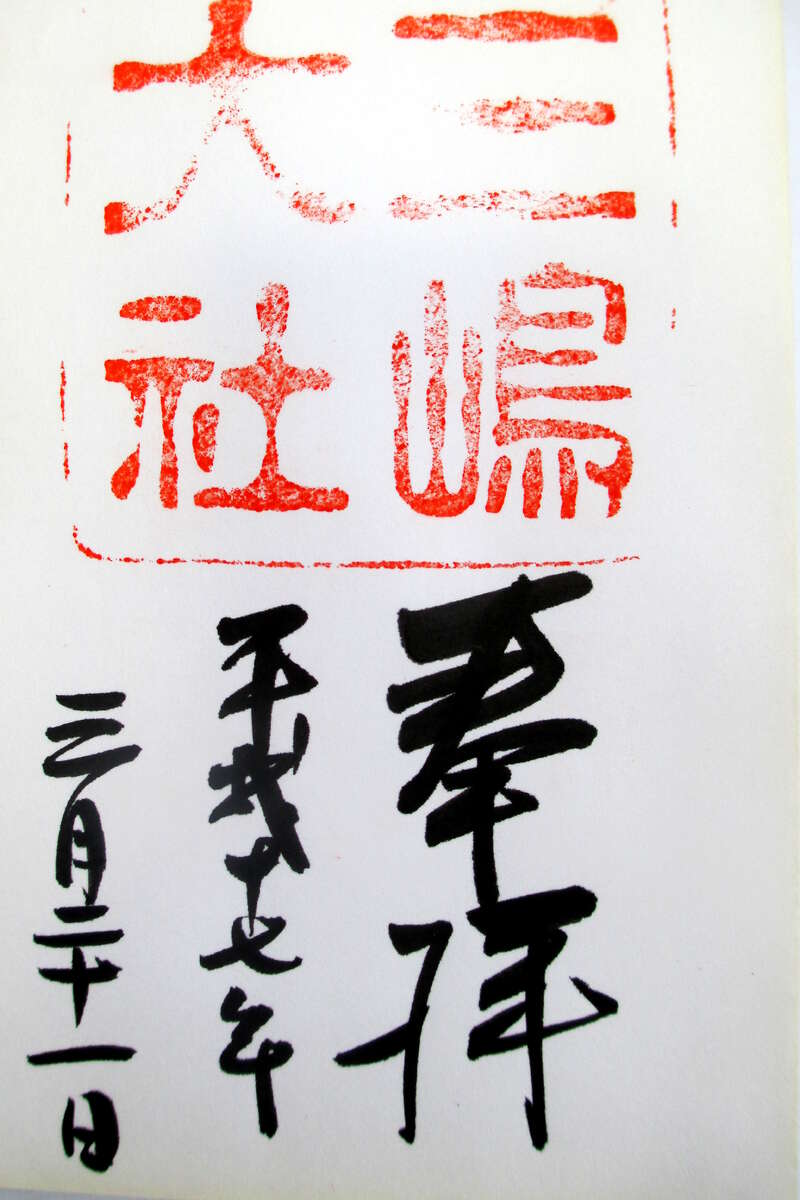 三嶋
大社
奉拝
平成十七年
三月二十一日